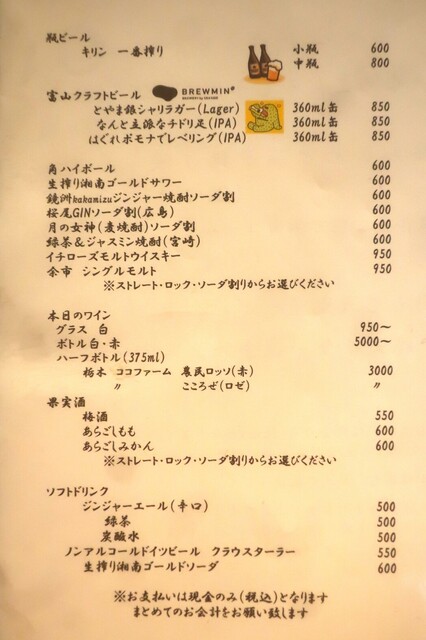 瓶ビール
キリン 一番搾り 小瓶 600
中瓶 800
富山クラフトビール BREWMIN®
とやま銀シャリラガー(Lager) 360ml缶 850
なんと立派なチドリ足(IPA) 360ml缶 850
はぐれポモナでレベリング(IPA) 360ml缶 850
角ハイボール 600
生搾り湘南ゴールドサワー 600
鏡洲kakamizuジンジャー焼酎ソーダ割 600
桜尾GINソーダ割(広島) 600
月の女神(麦焼酎)ソーダ割 600
緑茶&ジャスミン焼酎(宮崎) 600
イチローズモルトウイスキー 950
余市 シングルモルト 950
※ストレート・ロック・ソーダ割りからお選びください
本日のワイン
グラス 白 950〜
ボトル白・赤 5000〜
ハーフボトル(375ml)
栃木 ココファーム 農民ロッソ(赤) 3000
〃 こころぜ(ロゼ) 〃
果実酒
梅酒 550
あらごしもも 600
あらごしみかん 600
※ストレート・ロック・ソーダ割りからお選びください
ソフトドリンク
ジンジャーエール(辛口) 500
緑茶 500
炭酸水 500
ノンアルコールドイツビール クラウスターラー 550
生搾り湘南ゴールドソーダ 600
※お支払いは現金のみ(税込)となります
まとめてのお会計をお願い致します